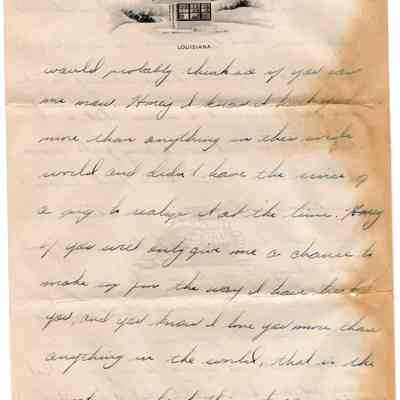 LOUISIANA
would probably think so if you saw
me now. Honey I know I hurt you
more than anything in this whole
world and didn't have the sense of
a pig to realize it at the time. Honey
if you will only give me a chance to
make up for the way I have treated
you, and you know I love you more than
anything in the world, that is the